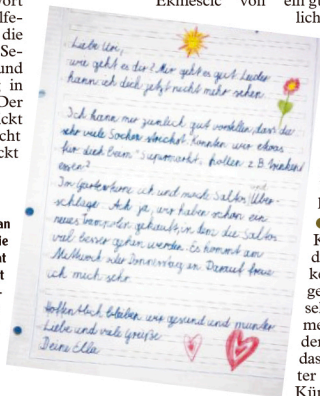 wort
lfe-
die
Se-
und
in
Der
ckt
cht
ckt
an
ie
at
t
Ekmescic von
ein gu
lich
Liebe Uri,
wie geht es dir? Mir geht es gut. Leider
kann ich dich jetzt nicht mehr sehen.
Ich kann mir ziemlich gut vorstellen, dass du
sehr viele Socken strickst. Konnten wir etwas
für dich beim Supermarkt holen z.B.
essen?
Im Garten turne ich und mache Saltos, Über-
schläge. Ach ja, wir haben schon ein
neues Trampolin gekauft, in dem die Saltos
viel besser gehen werden. Es kommt am
Mittwoch oder Donnerstag an. Darauf freue
ich mich sehr.
Hoffentlich bleiben wir gesund und munter
Liebe und viele Grüße
Deine Ella
K
d
ko
ge
sel
me
der
das
ter
Kün